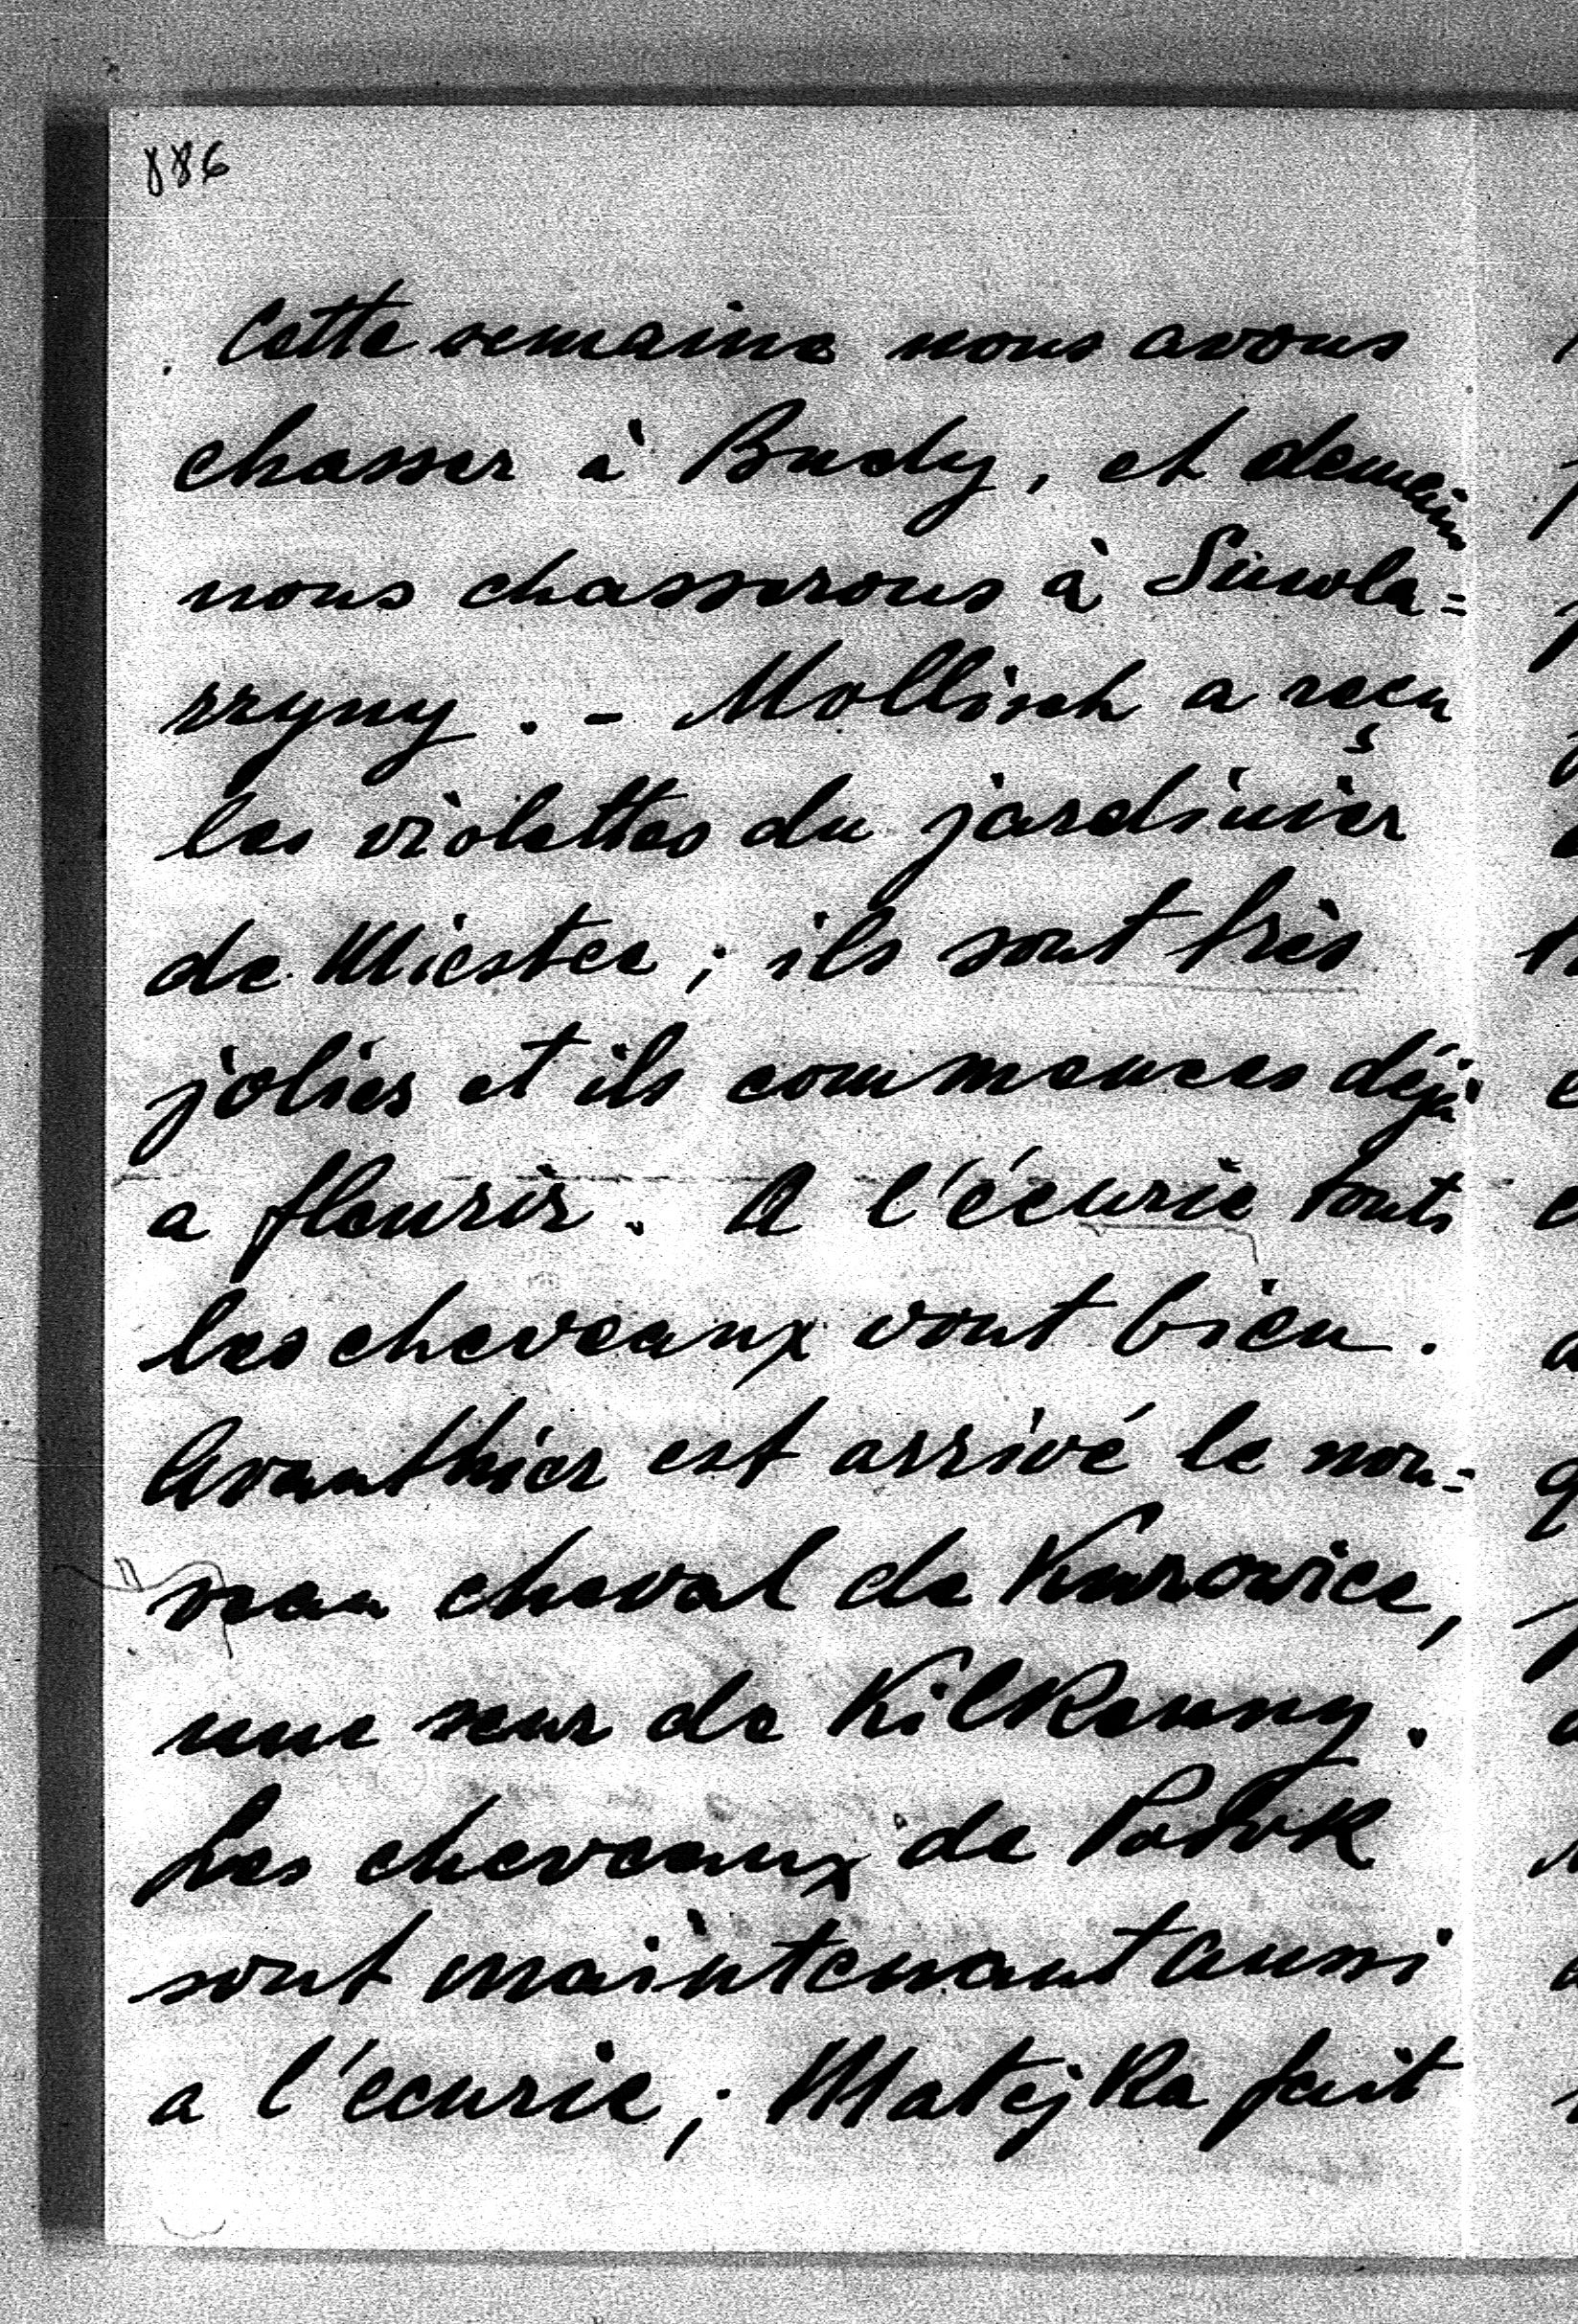 886
Cette semaine nous avons
chasser à Budy, et demain
nous chasserons à Sinola=
rzyny. - Mollisch a reçu
les violettes du jardinier
de Miestec; ils sont très
jolies et ils commences déjà
a fleurir. A l'écurie touts
les cheveaux vont bien.
Avanthier est arrivé le nou=
veau cheval de Kurowice,
une seur de Kilkenny.
Les cheveaux de
sont maintenant aussi
a l'ecurie; Matejka fait